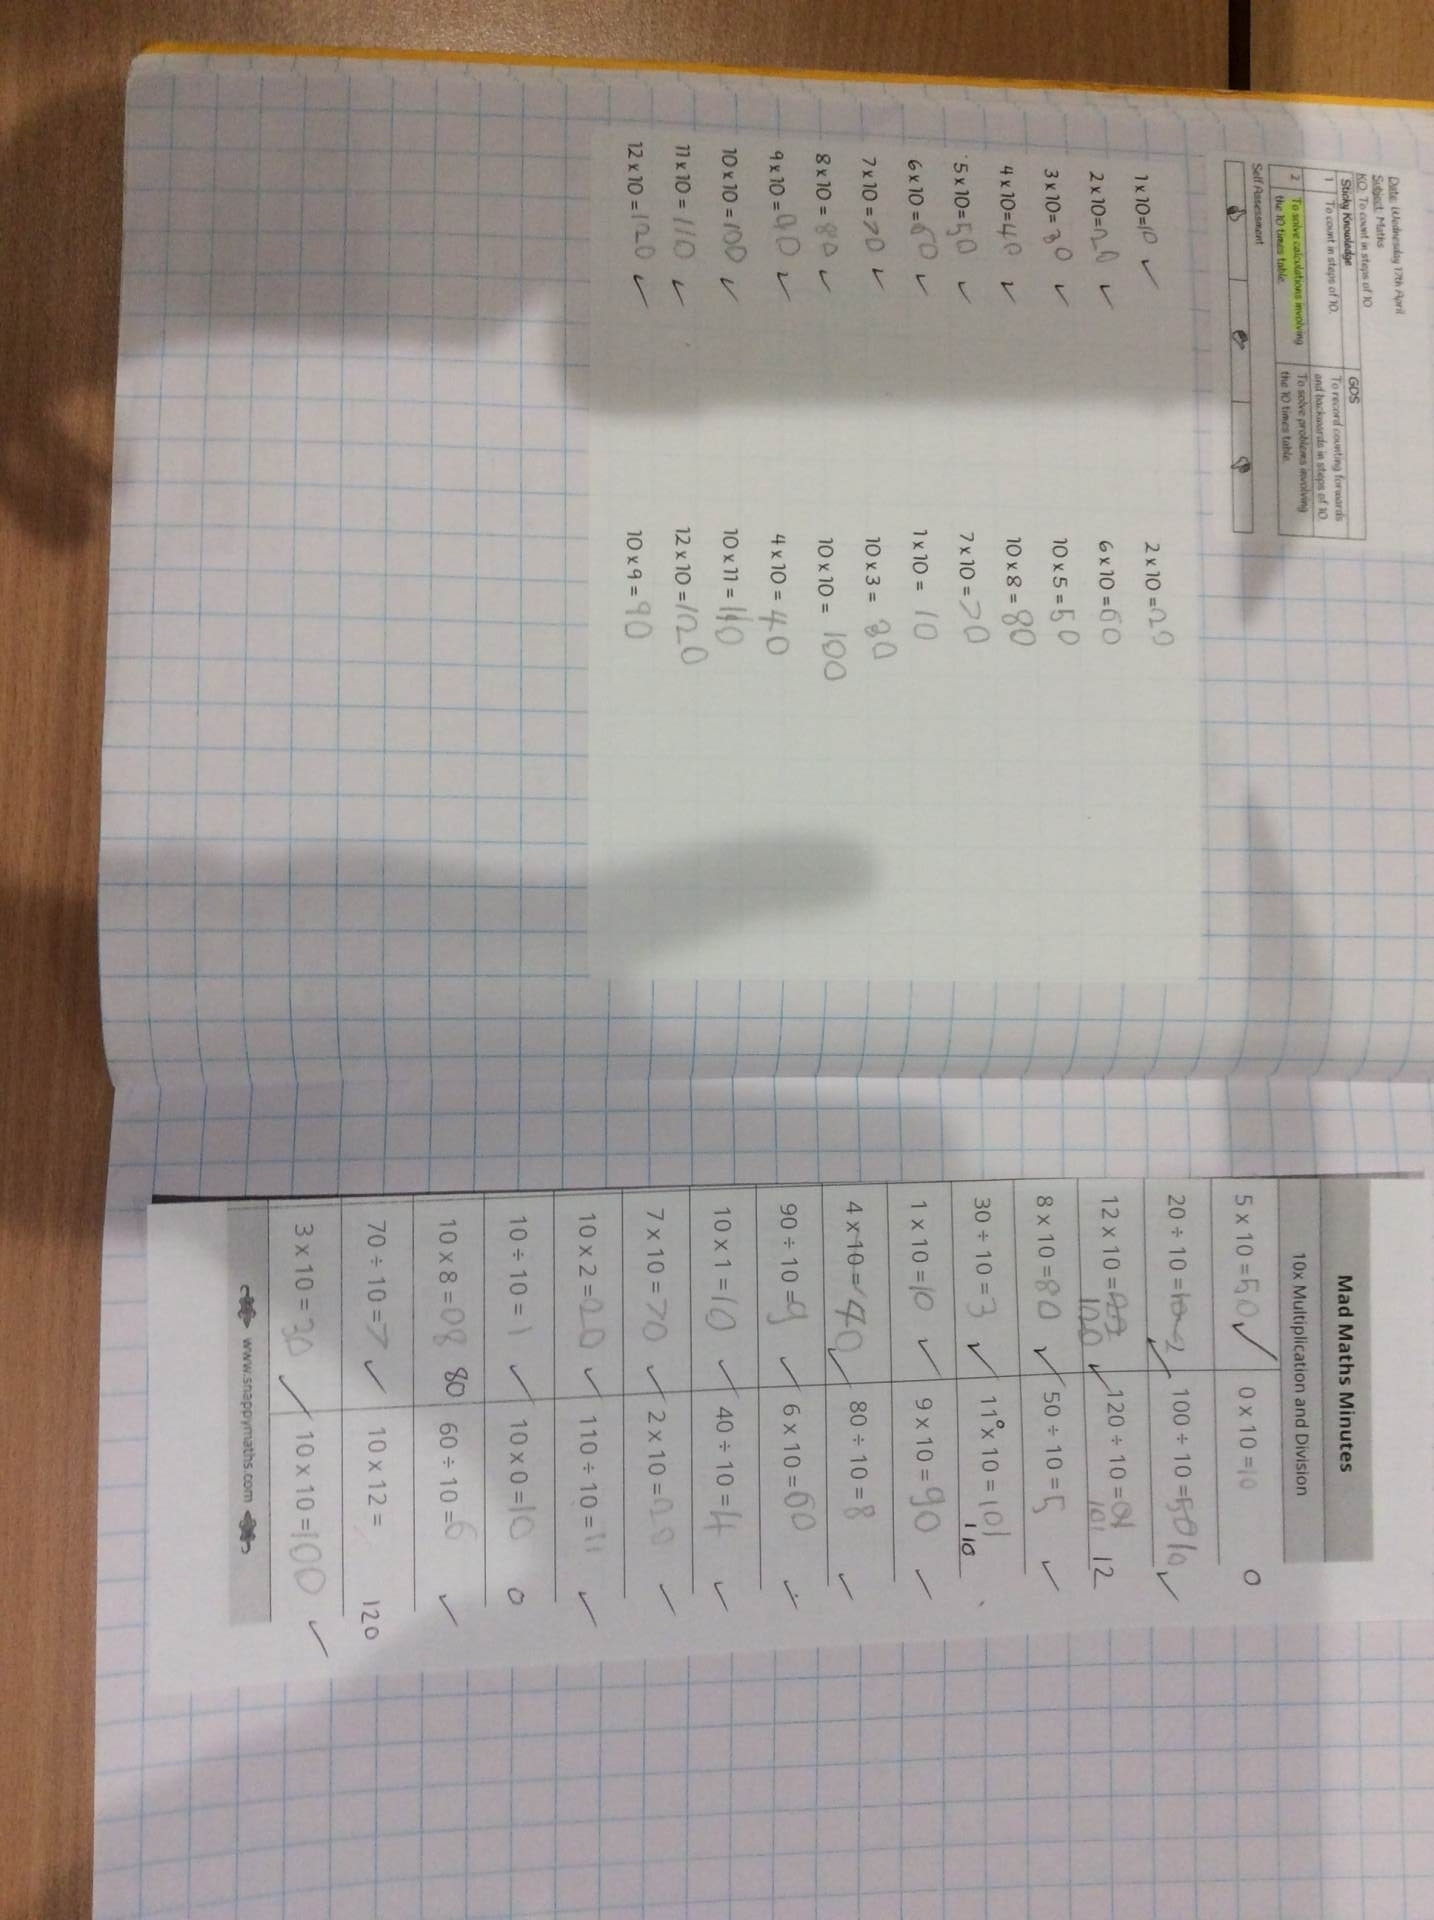 Date: Wednesday 17th April
Subject: Maths
KO: To count in steps of 10
Sticky Knowledge
GDS
1 To count in steps of 10.
To record counting forwards and backwards in steps of 10
2 To solve calculations involving the 10 times table.
To solve problems involving the 10 times table.
Self Assessment
1 x 10 = 10 ✓
2 x 10 = 20 ✓
3 x 10 = 30 ✓
4 x 10 = 40 ✓
5 x 10 = 50 ✓
6 x 10 = 60 ✓
7 x 10 = 70 ✓
8 x 10 = 80 ✓
9 x 10 = 90 ✓
10 x 10 = 100 ✓
11 x 10 = 110 ✓
12 x 10 = 120 ✓
2 x 10 = 20
6 x 10 = 60
10 x 5 = 50
10 x 8 = 80
7 x 10 = 70
1 x 10 = 10
10 x 3 = 30
10 x 10 = 100
4 x 10 = 40
10 x 11 = 110
12 x 10 = 120
10 x 9 = 90
Mad Maths Minutes
10x Multiplication and Division
5 x 10 = 50 ✓ 0 x 10 = 10 0
20 ÷ 10 = 2 ✓ 100 ÷ 10 = 10 ✓
12 x 10 = 120 ✓ 120 ÷ 10 = 101 12
8 x 10 = 80 ✓ 50 ÷ 10 = 5 ✓
30 ÷ 10 = 3 ✓ 11 x 10 = 101 110
1 x 10 = 10 ✓ 9 x 10 = 90 ✓
4 x 10 = 40 ✓ 80 ÷ 10 = 8 ✓
90 ÷ 10 = 9 ✓ 6 x 10 = 60 ✓
10 x 1 = 10 ✓ 40 ÷ 10 = 4 ✓
7 x 10 = 70 ✓ 2 x 10 = 20 ✓
10 x 2 = 20 ✓ 110 ÷ 10 = 11 ✓
10 ÷ 10 = 1 ✓ 10 x 0 = 10 0
10 x 8 = 08 80 60 ÷ 10 = 6 ✓
70 ÷ 10 = 7 ✓ 10 x 12 = 120
3 x 10 = 30 ✓ 10 x 10 = 100 ✓
www.snappymaths.com